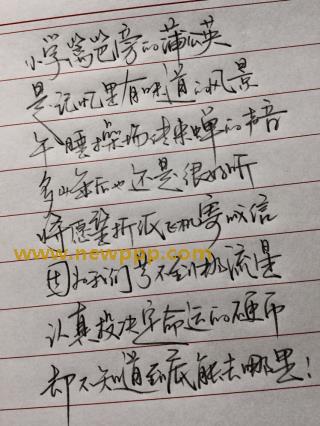 小学篱笆旁的蒲公英
是记忆里有味道的风景
午睡操场传来蝉的声音
多少年后也还是很好听
将愿望折纸飞机寄成信
www.newppp.com
因为我们等不到那流星
认真投决定命运的硬币
却不知道到底能去哪里!